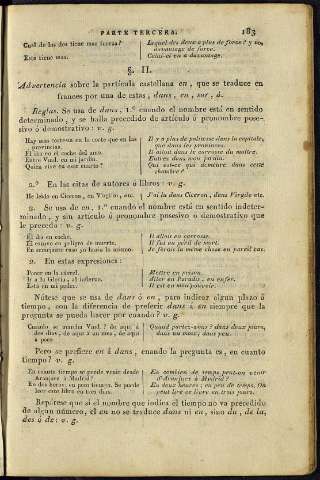 PARTE TERCERA. 183
Cual de los dos tiene mas fuerza? Lequel des deux a plus de force? y en,
davantage de force.
Este tiene mas. Celui-ci en a davantage.
§. II.
Advertencia sobre la partícula castellana en, que se traduce en
frances por una de estas, dans, en, sur, à.
Reglas. Se usa de dans, 1.º cuando el nombre está en sentido
determinado, y se halla precedido de artículo ó pronombre posesivo
ó demostrativo: v. g.
Hay mas cortesía en la corte que en las Il y a plus de politesse dans la capitale,
provincias. que dans les provinces.
El iba en el coche del amo. Il allait dans le carrosse du maître.
Entre Vmd. en mi jardin. Entrez dans mon jardin.
Quien vive en este cuarto? Qui est-ce qui demeure dans cette
chambre?
2.º En las citas de autores ó libros: v. g.
He leido en Ciceron, en Virgilio, etc. J'ai lu dans Ciceron, dans Virgile etc.
Se usa de en, 1.º cuando el nombre está en sentido indeterminado,
y sin artículo ó pronombre posesivo ó demostrativo que
le preceda: v. g.
El iba en coche. Il allait en carrosse.
El estuvo en peligro de muerte. Il fut en péril de mort.
En semejante caso yo haria lo mismo. Je ferais la même chose en pareil cas.
2. En estas expresiones:
Poner en la cárcel. Mettre en prison.
Ir a la Gloria, al infierno. Aller en Paradis, en enfer.
Está en mi poder. Il est en mon pouvoir.
Nótese que se usa de dans ó en, para indicar algun plazo ó
tiempo, con la diferencia de preferir dans á en siempre que la
pregunta se pueda hacer por cuando? v. g.
Cuando se marcha Vmd.? de aquí á Quand partez-vous? dans deux jours,
dos dias, de aquí á un mes, de aquí dans un mois, dans peu.
á poco
Pero se prefiere en á dans, cuando la pregunta es, en cuanto
tiempo? v. g.
En cuanto tiempo se puede venir desde En combien de temps peut-on venir
Aranjuez á Madrid? d'Aranjuez à Madrid?
En dos horas: en poco tiempo. Se puede En deux heures; en peu de temps. On
leer este libro en tres dias. peut lire ce livre en trois jours.
Repárese que si el nombre que indica el tiempo no va precedido
de algun número, el en no se traduce dans ni en, sino du, de la,
des ó de: v. g.